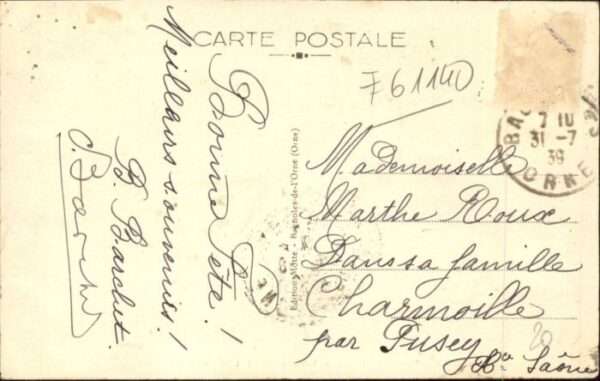 CARTE POSTALE
761140
Bonne Fête!
Meilleurs souvenirs!
B. Barchet.
Edition Motte - Bagnoles-de-l'Orne (Orne)
Mademoiselle
Marthe Roux
Dans sa famille
Charmoille
par Pusey
Hte Saône
20
7 10
31-7
39
ORNE